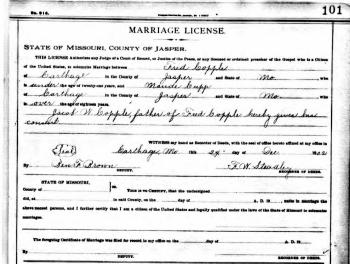 No. 516.
101
MARRIAGE LICENSE.
STATE OF MISSOURI, COUNTY OF JASPER.
THIS LICENSE Authorizes any Judge of a Court of Record, or Justice of the Peace, or any licensed or ordained preacher of the Gospel who is a Citizen
of the United States, to solemnize Marriage between Fred Copple
of Carthage in the County of Jasper and State of Mo. who
is under the age of twenty-one years, and Maude Cupp
of Carthage in the County of Jasper and State of Mo. who
is over the age of eighteen years.
Jacob W. Copple, father of Fred Copple hereby gives his
consent.
WITNESS my hand as Recorder of Deeds, with the seal of office hereto affixed at my office in
(Seal) Carthage, Mo. this 24 day of Dec 1902
By Ben F. Brown F. W. Steadley
DEPUTY. RECORDER OF DEEDS.
STATE OF MISSOURI,
County of ss. This is to Certify, that the undersigned
did, at in said County, on the day of A. D. 18 unite in marriage the
above named persons, and I further certify that I am a citizen of the United States and legally qualified under the laws of the State of Missouri to solemnize
marriages.
The foregoing Certificate of Marriage was filed for record in my office on the day of A. D. 18
By
DEPUTY. RECORDER OF DEEDS.